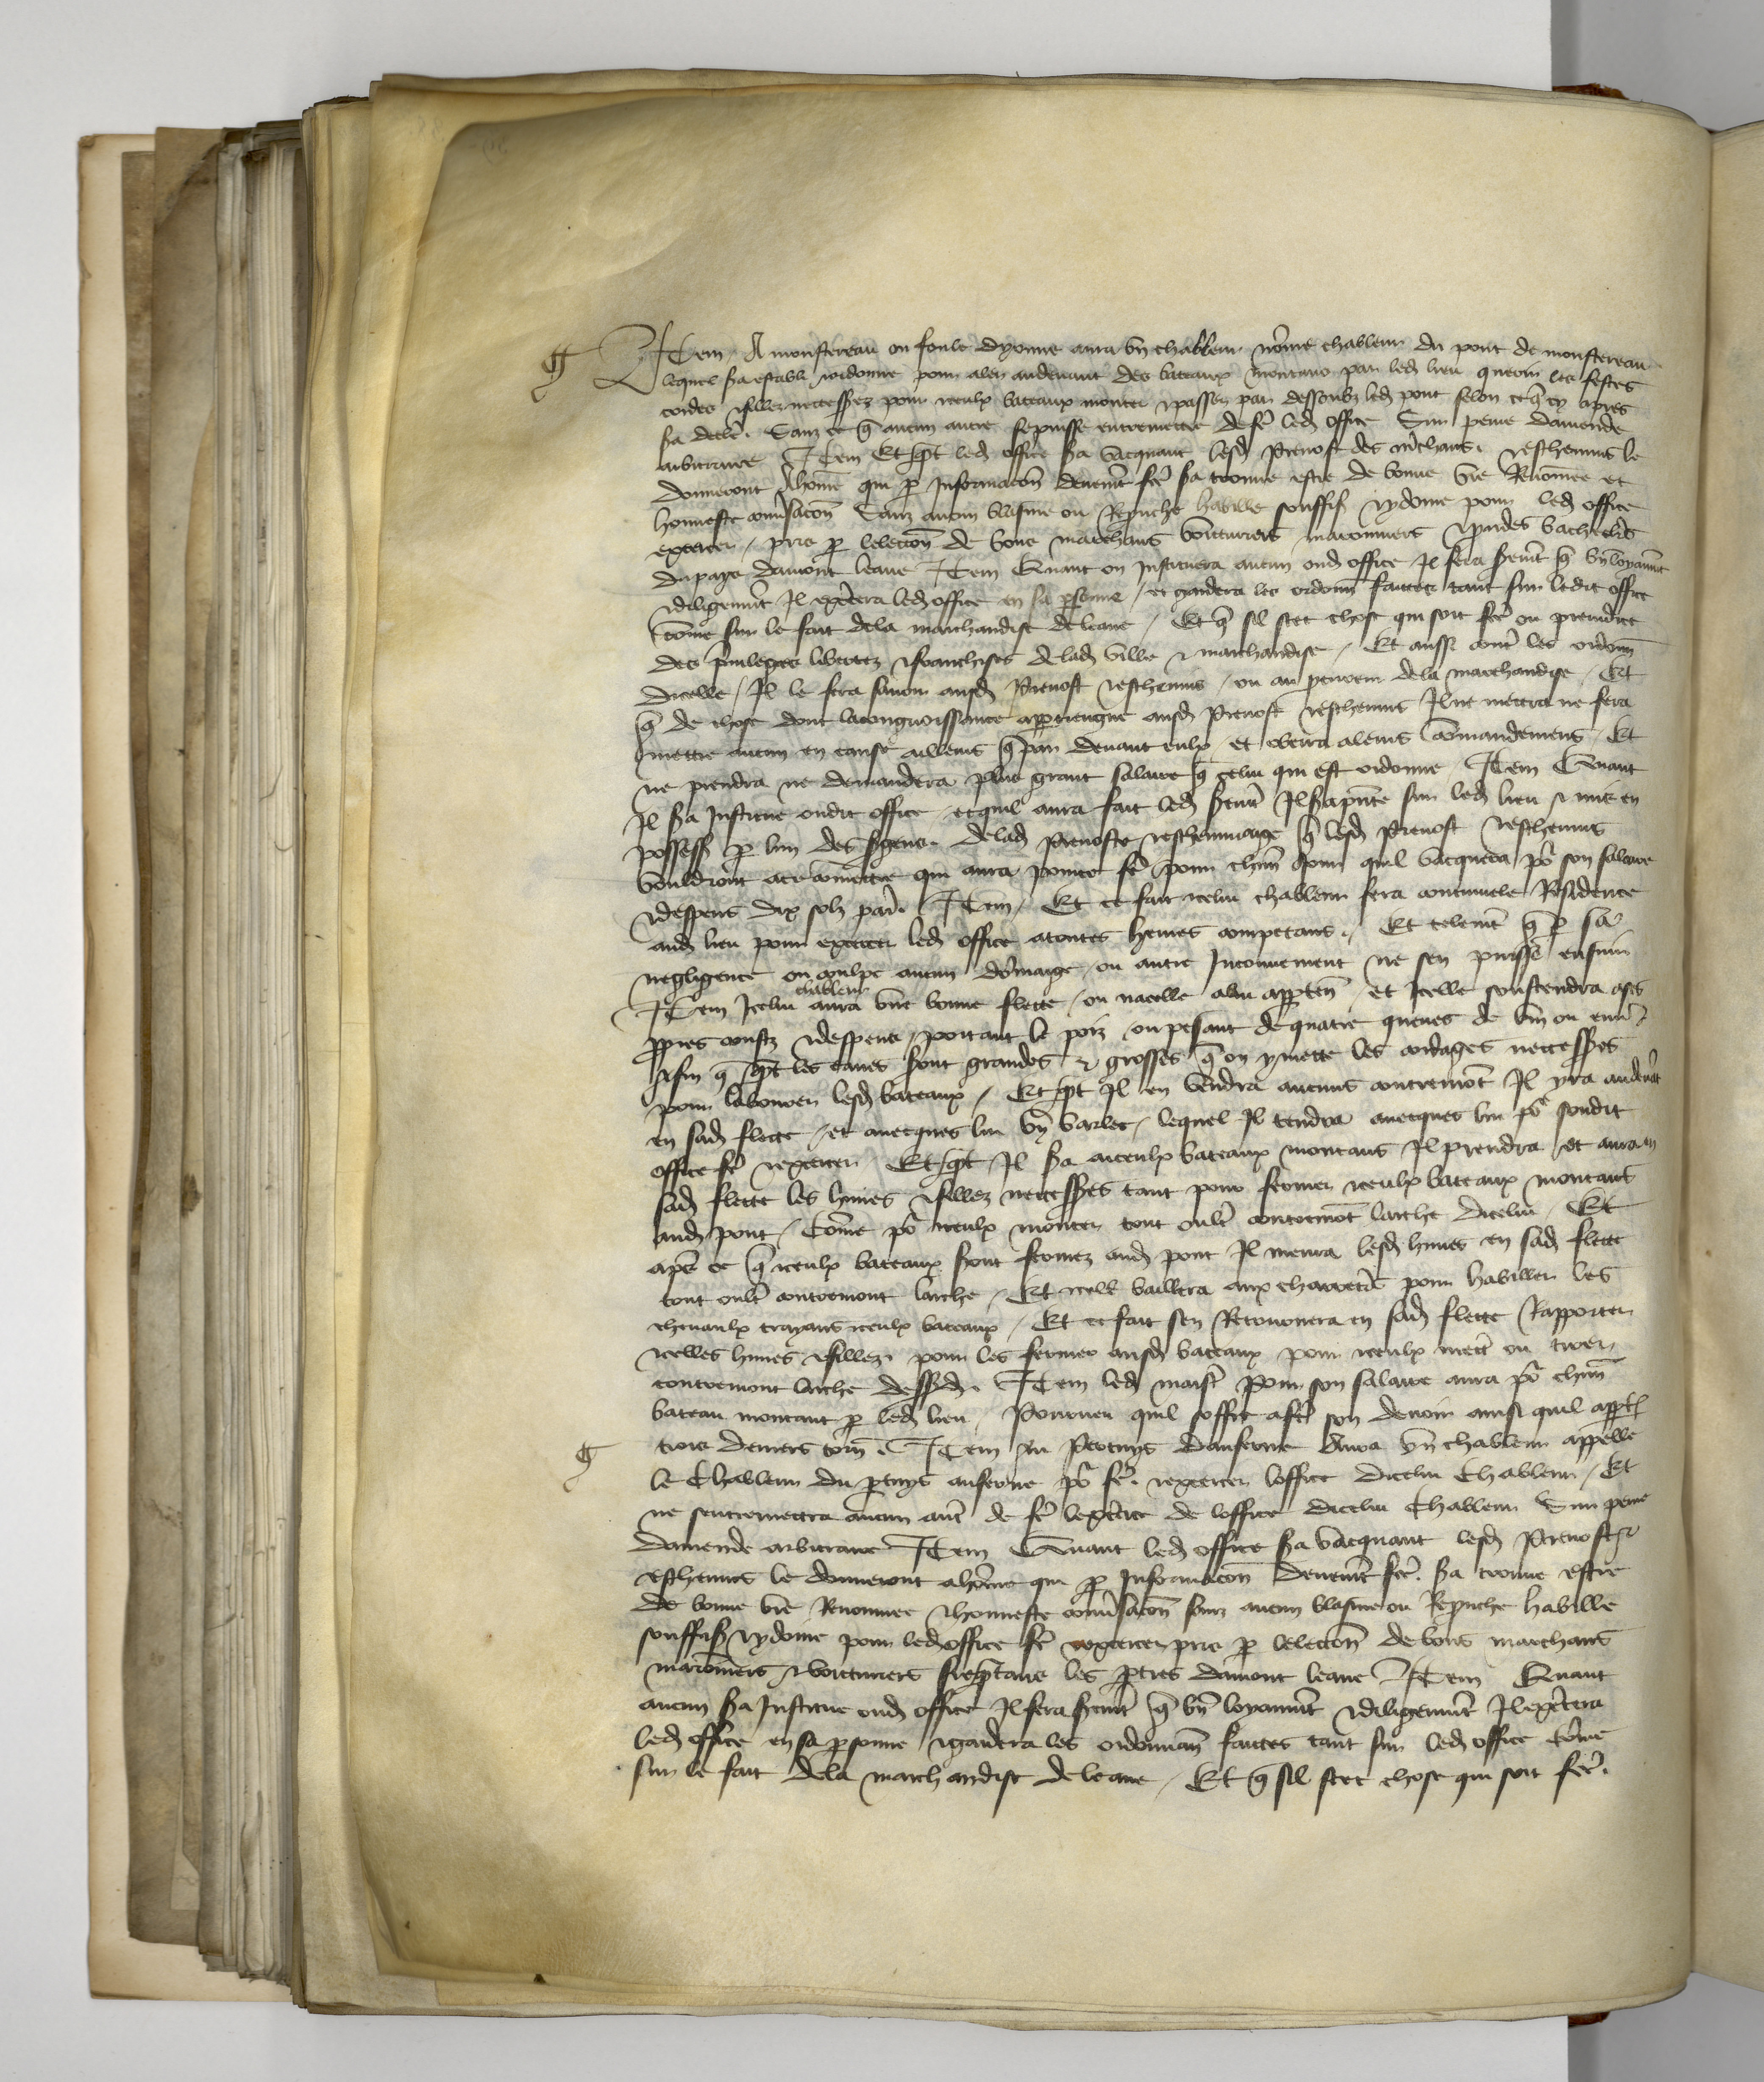 Item A monstereau ou foule dyonne aura vn chableur nōme chableur du pont de monstereau
lequel sa establi & ordonne pour aler audeuant des bateaux montans par led lieu querir les festes
cordes & fillez necess̃es pour iceulx bateaux monter & passer par dessoubz led pont selon ce q̃ cy apres
sa declẽ. Sanz ce q̃ aucun autre se puisse entremettre de fẽ led office Sur peine damende
arbitraire Item Et qñt led office sa vacquant lesd Preuost des m̃chans & escheuins le
donneront A hōme qui p informacõn deuemẽt fcẽ sa trouue estre de bonne vie Renōmee et
honneste conũsacõn Sanz aucun blasme ou Reprouche habille souffis̃ & ydoine pour led office
exercer / pris p lelection de bons marchans voicturiers maronniers & preudes bacheliers
du pays damont leaue Item Quant on instituera aucun oud office Il fera serem̃t q̃ bñ loyaumẽt
& diligemmẽt Il exẽcera led office en sa p̃sonne / et gardera les ordonñ faictes tant sur ledit office
cōme sur le fait de la marchandise de leaue / Et q̃ sil scet chose qui soit fcẽ ou preiudice
des p̃uileges libertez & franchises de lad ville & marchandise / Et aussi contẽ les ordonñ
dicelle / Il le fera sauoir ausd Preuost & escheuins / ou au procureur de la marchandise / Et
q̃ de chose dont la congnoissance appartiengne ausd Preuost & escheuins Il ne mettra ne fera
mettre aucun en cause ailleurs q̃ par deuant eulx / et obeira a leurs cōmandemens / Et
ne prendra ne demandera plus grant salaire q̃ celui qui est ordonne Item Quant
Il sa institue oudit office / et quil aura fait led seremẽt Il sa p̃sente sur led lieu & mis en
possess̃ p lun des sergens de lad Preuoste & escheuinage q̃ lesd Preuost & escheuins
vouldront ace cōmettre qui aura pour ce fẽ pour chũn jour quil vacquera põ son salaire
& despens dix solz par̃. Item / Et ce fait icelui chableur fera continuele Residence
aud lieu pour exercer led office a toutes heures competans / Et telemẽt q̃ p sa
negligence ou coulpe aucun dōmaige / ou autre Inconuenient ne sen puisse ensuir
Item Icelui chableur aura vne bonne flette / ou nacelle alui apparteñ / et Icelle soustendra ases
ppres coustz & despens / portant le poiz ou pesant de quatre queues de vin ou enuir̃
Afin q̃ qñt les eaues sont grandes & grosses q̃ on y mette les cordages necess̃es
pour labourer lesd bateaux / Et qñt Il en vendra aucuns contremõt Il yra audeuãt
en sad flette / et auecques lui vñ varlet / lequel Il tendra auecques lui põ soudit
office fẽ & exercer Et qñt Il sa aiceulx bateaux montans Il prendra et aura en
sad flette les lymes & fillez necess̃es tant pour fermer iceulx bateaux montans
aud pont / Cōme põ iceulx monter tout oultẽ contremõt larche dicelui / Et
apẽs ce q̃ iceulx bateaux sont fermez aud pont Il menra lesd lymes en sad flette
tout oultẽ contremont larche / Et icelle baillera aux charretiẽs pour habiller les
cheuaulx trayans iceulx bateaux / Et ce fait sen Retournera en sad flette Rapporter
icelles lymes & fillez pour les fermer ausd bateaux pour iceulx mettẽ ou tirer
contremont larche dessusd. Item led maistẽ Pour son salaire aura põ chũn
bateau montant p led lieu / Pourueu quil soffre a fẽ son deuoir ainsi quil appt̃
trois deniers torñ. Item Au Pertuys dauferne Aura vñ chableur appelle
le Chableur du ptuys auferne põ fẽ. & exercer loffice dicelui Chableur / Et
ne sentremettra aucun autẽ de fẽ lexẽcice de loffice dicelui Chableur Sur peine
damende arbitraire Item Quant led office sa vacquant lesd Preuost &
escheuins le donneront a hōme qui p Informacõn deuemẽt fcẽ. sa trouue estre
de bonne vie Renommee & honneste conũsacõn sanz aucun blasme ou Reprouche habille
souffis̃ & ydoine pour led office fẽ & exercer pris p lelection de bons marchans
maroniers & voicturiers frequentans les pties damont leaue Item Quant
aucun sa Institue oud office Il fera seremẽt q̃ bñ loyaumẽt & diligemmẽt Il exẽcera
led office en sa p̃sonne & gardera les ordonnañ faictes tant sur led office cōme
sur le fait de la marchandise de leaue / Et q̃ sil scet chose qui soit fcẽ.